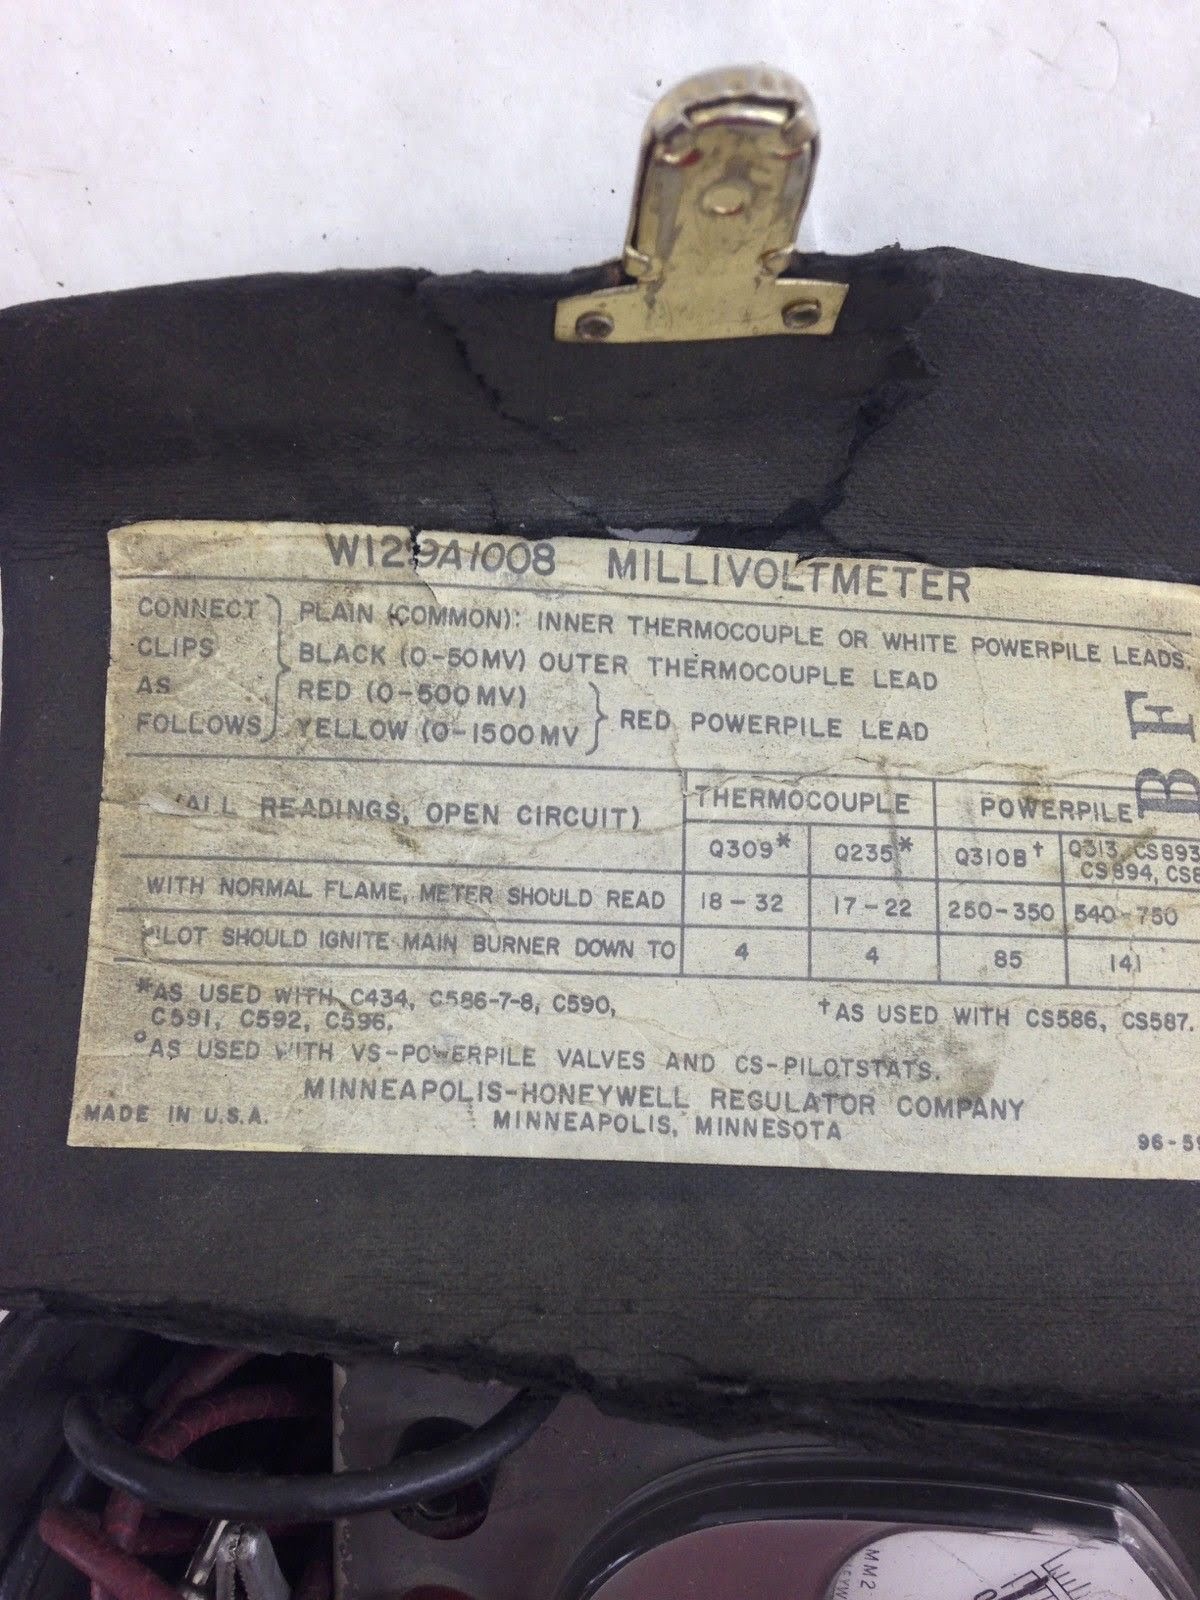 W129A1008 MILLIVOLTMETER
CONNECT CLIPS AS FOLLOWS
PLAIN (COMMON): INNER THERMOCOUPLE OR WHITE POWERPILE LEADS.
BLACK (0-50MV) OUTER THERMOCOUPLE LEAD
RED (0-500MV)
YELLOW (0-1500MV
RED POWERPILE LEAD
BF
(ALL READINGS, OPEN CIRCUIT) THERMOCOUPLE POWERPILE
Q309* Q235* Q310B† Q313, CS893
CS894,
WITH NORMAL FLAME, METER SHOULD READ 18-32 17-22 250-350 540-750
PILOT SHOULD IGNITE MAIN BURNER DOWN TO 4 4 85 141
*AS USED WITH C434, C586-7-8, C590,
C591, C592, C596.
†AS USED WITH CS586, CS587.
°AS USED WITH VS-POWERPILE VALVES AND CS-PILOTSTATS.
MINNEAPOLIS-HONEYWELL REGULATOR COMPANY
MADE IN U.S.A. MINNEAPOLIS, MINNESOTA
MM2
0